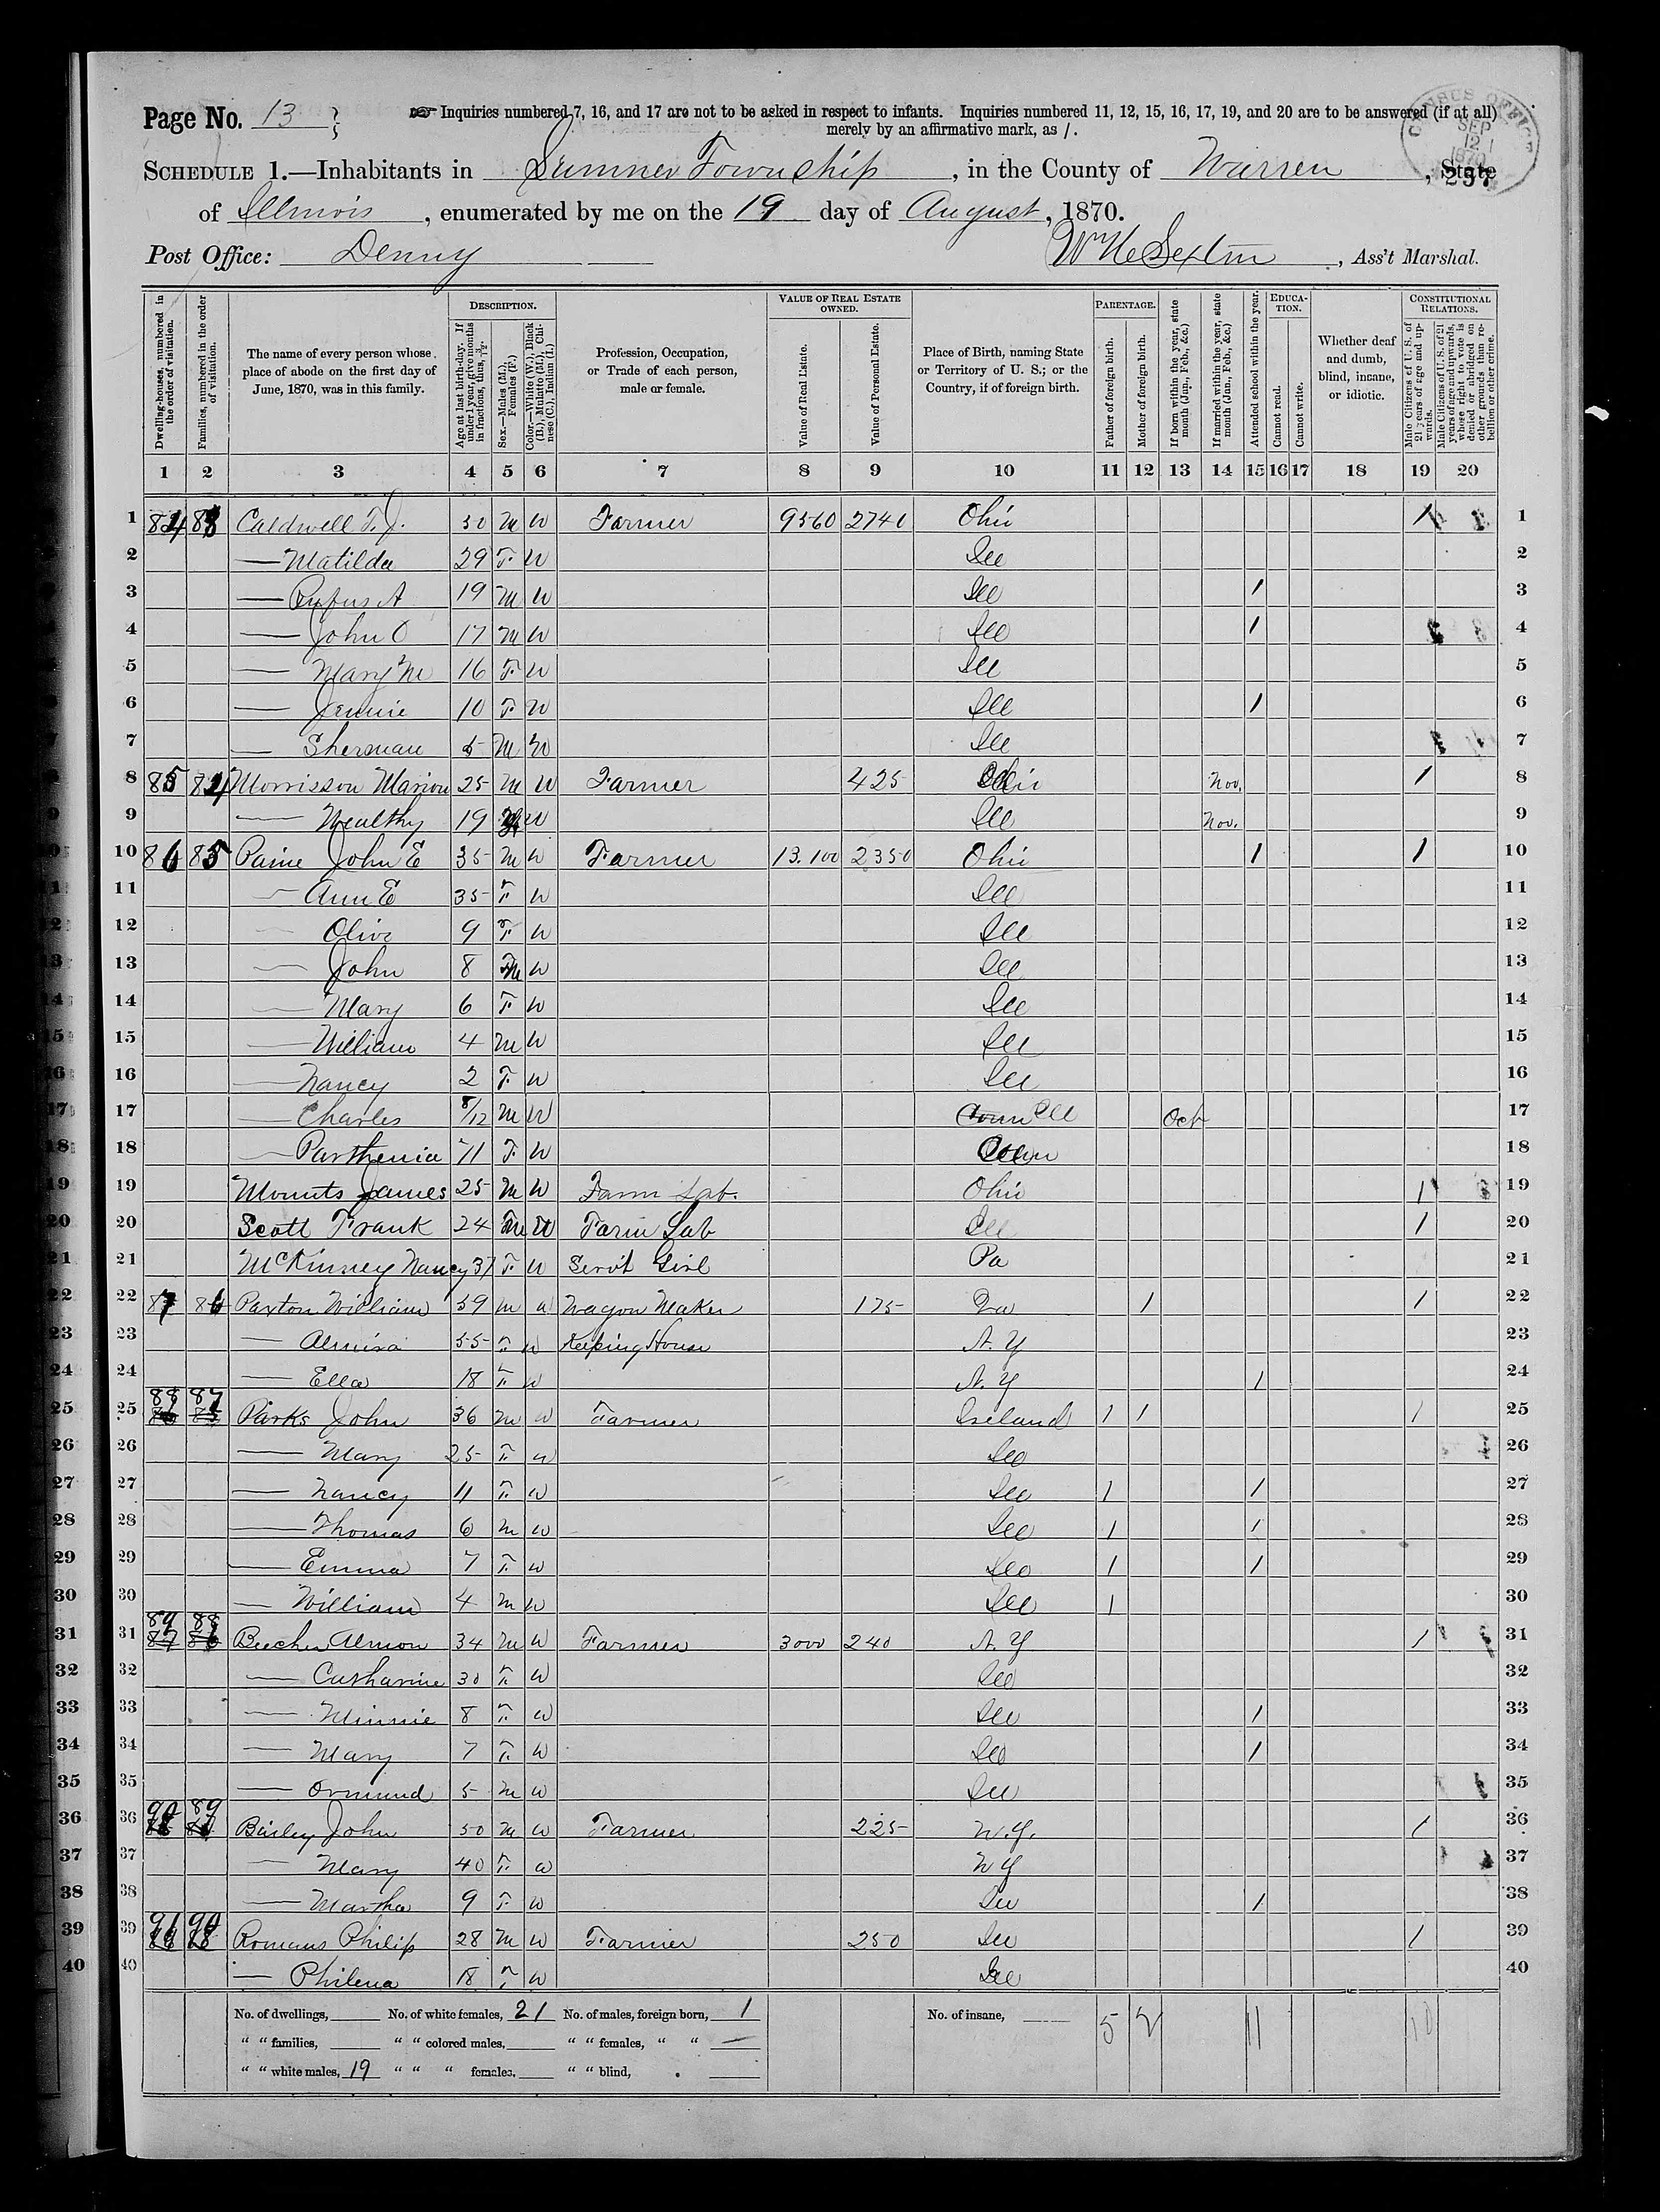 Page No. 13
☞ Inquiries numbered 7, 16, and 17 are not to be asked in respect to infants. Inquiries numbered 11, 12, 15, 16, 17, 19, and 20 are to be answered (if at all)
merely by an affirmative mark, as /.
CENSUS OFFICE
SEP 12 1870
257
SCHEDULE 1.—Inhabitants in Sumner Township, in the County of Warren, State
of Illinois, enumerated by me on the 19 day of August, 1870.
Post Office: Denny
Ass't Marshal.
DESCRIPTION. VALUE OF REAL ESTATE OWNED. PARENTAGE. EDUCATION. CONSTITUTIONAL RELATIONS.
Dwelling-houses, numbered in the order of visitation.
Families, numbered in the order of visitation.
The name of every person whose place of abode on the first day of June, 1870, was in this family.
Age at last birth-day. If under 1 year, give months in fractions, thus, 3/12.
Sex.—Males (M.), Females (F.)
Color.—White (W.), Black (B.), Mulatto (M.), Chinese (C.), Indian (I.)
Profession, Occupation, or Trade of each person, male or female.
Value of Real Estate.
Value of Personal Estate.
Place of Birth, naming State or Territory of U. S.; or the Country, if of foreign birth.
Father of foreign birth.
Mother of foreign birth.
If born within the year, state month (Jan., Feb., &c.)
If married within the year, state month (Jan., Feb., &c.)
Attended school within the year.
Cannot read.
Cannot write.
Whether deaf and dumb, blind, insane, or idiotic.
Male Citizens of U. S. of 21 years of age and upwards.
Male Citizens of U. S. of 21 years of age and upwards, whose right to vote is denied or abridged on other grounds than rebellion or other crime.
1 2 3 4 5 6 7 8 9 10 11 12 13 14 15 16 17 18 19 20
1 84 83 Caldwell T. J. 50 M W Farmer 9560 2740 Ohio / 1
2 — Matilda 29 F. W Ill 2
3 — Rufus A 19 M W Ill / 3
4 — John O 17 M W Ill / 4
5 — Mary M 16 F. W Ill 5
6 — Jennie 10 F. W Ill / 6
7 — Sherman 5 M W Ill 7
8 85 84 Morrisson Marion 25 M W Farmer 425 Nov. / 8
9 — Wealthy 19 F W Ill Nov. 9
10 86 85 Paine John E 35 M W Farmer 13.100 2350 Ohio / / 10
11 — Ann E 35 F W Ill 11
12 — Olive 9 F W Ill 12
13 — John 8 M W Ill 13
14 — Mary 6 F. W Ill 14
15 — William 4 M W Ill 15
16 — Nancy 2 F. W Ill 16
17 — Charles 8/12 M W Conn Ill Oct 17
18 — Parthenia 71 F. W 18
19 Mounts James 25 M W Farm Lab. Ohio / 19
20 Scott Frank 24 M W Farm Lab Ill / 20
21 McKinney Nancy 37 F. W Servt Girl Pa 21
22 87 86 Paxton William 59 M W Wagon Maker 175 / / 22
23 — Almira 55 F. W Keeping House N. Y 23
24 — Ella 18 F. W N. Y / 24
25 88 87 Parks John 36 M W Farmer Ireland / / / 25
26 — Mary 25 F. W Ill 26
27 — Nancy 11 F. W Ill / / 27
28 — Thomas 6 M W Ill / / 28
29 — Emma 7 F. W Ill / / 29
30 — William 4 M W Ill / 30
31 89 88 Beecher Almon 34 M W Farmer 3000 240 N. Y / 31
32 — Catharine 30 F. W Ill 32
33 — Minnie 8 F. W Ill / 33
34 — Mary 7 F. W Ill / 34
35 — Ormund 5 M W Ill 35
36 90 89 Bailey John 50 M W Farmer 225 N.Y. / 36
37 — Mary 40 F. W N Y 37
38 — Martha 9 F. W Ill / 38
39 91 90 Romans Philip 28 M W Farmer 250 Ill / 39
40 — Philena 18 F. W Ill 40
No. of dwellings, No. of white females, 21 No. of males, foreign born, 1 No. of insane, 5 2 11 10
" " families, " " colored males, " " females, " " —
" " white males, 19 " " " females, " " blind,